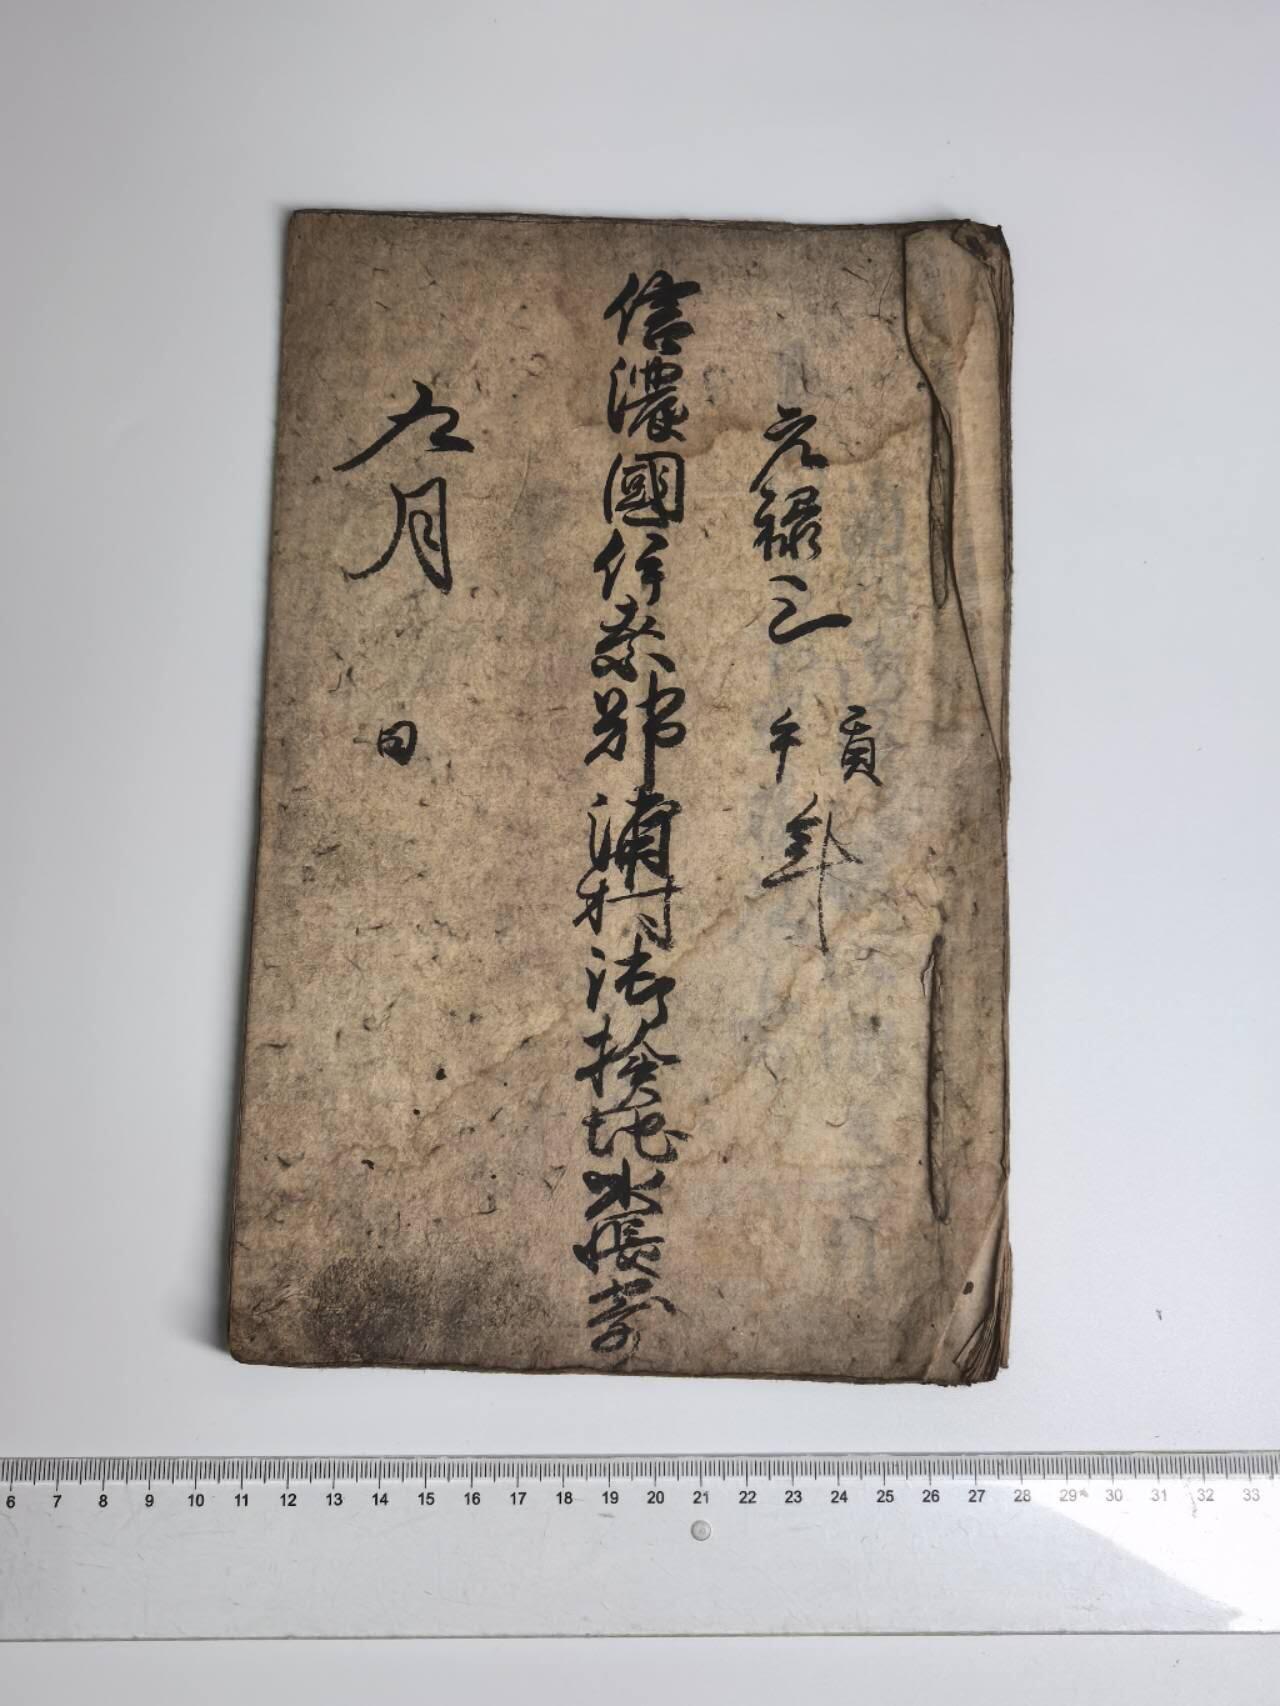 元禄三
庚
午
年
信濃國伊奈郡浦村御検地水帳寫
九月
日
6 7 8 9 10 11 12 13 14 15 16 17 18 19 20 21 22 23 24 25 26 27 28 29 30 31 32 33